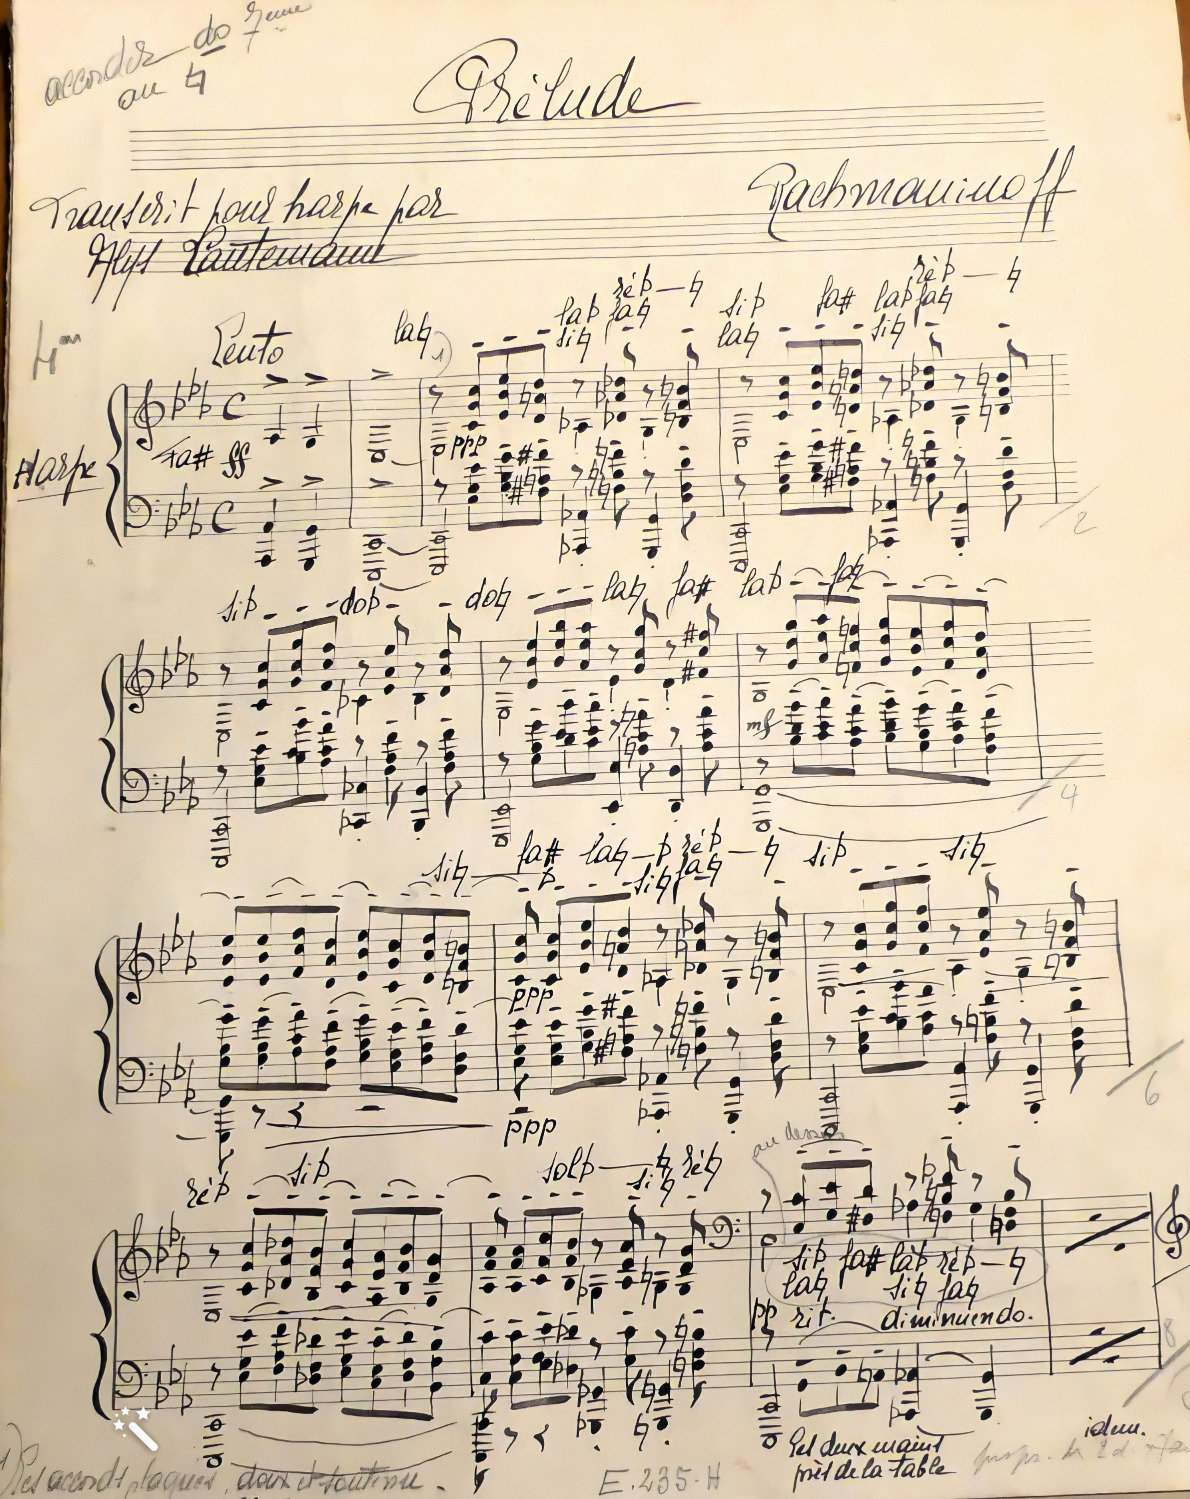 accorder do 7eme
au ♮
Prélude
Transcrit pour harpe par
Rachmaninoff
Alys Lautemann
ré♭ — ♮
ré♭ — ♮
la♭ fa♮
si♭ fa# la♭ fa♮
Lento
la♮
si♮
la♮
si♮
1)
C
ppp
Harpe
Fa# ff
C
2
si♭
do♭
do♮
la♮ fa#
la♭
fa♮
mf
4
si♮
fa# la♮ — ♭ ré♭ — ♮
si♭
si♮
si♮ fa♮
ppp
ppp
6
au dessus
ré♭
si♭
sol♭ — ♮ ré♮
si♮
si♭ fa# la♭ ré♭ — ♮
la♮ si♮ fa♮
pp rit. diminuendo.
8
idem.
Les deux mains
près de la table
1) Les accords plaqués, doux et soutenu.
E.235.H